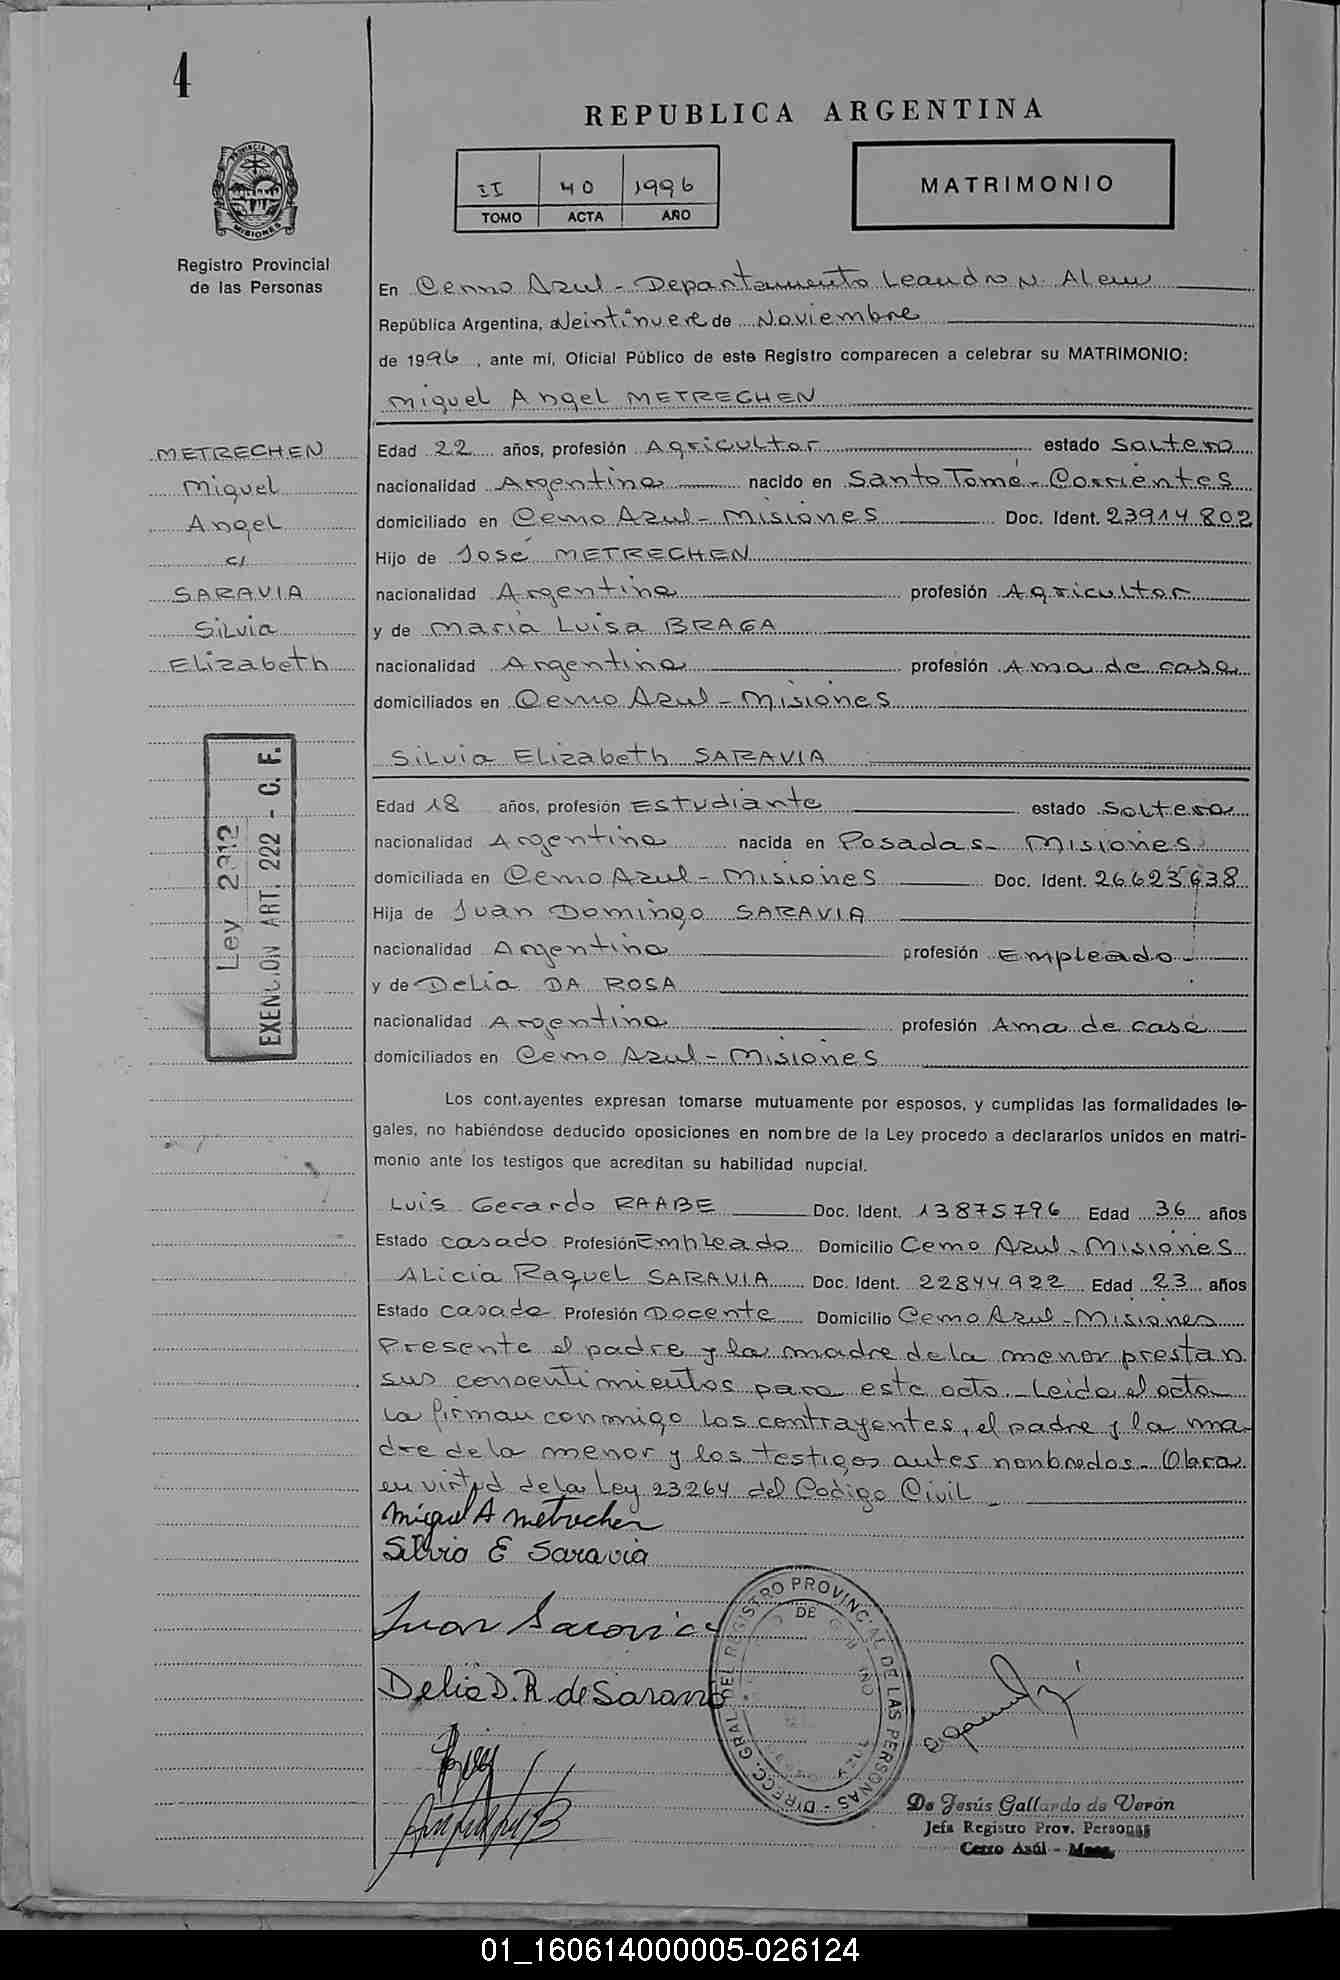 4
REPUBLICA ARGENTINA
PROVINCIA DE
MISIONES
Registro Provincial
de las Personas
II 40 1996
TOMO ACTA AÑO
MATRIMONIO
En Cerro Azul - Departamento Leandro N. Alem
República Argentina, a Veintinueve de Noviembre
de 1996, ante mi, Oficial Público de este Registro comparecen a celebrar su MATRIMONIO:
Miguel Angel METRECHEN
METRECHEN
Miguel
Angel
c/
SARAVIA
Silvia
Elizabeth
Ley 2312
EXENCION ART. 222 - C. F.
Edad 22 años, profesión Agricultor estado Soltero
nacionalidad Argentina nacido en Santo Tomé - Corrientes
domiciliado en Cerro Azul - Misiones Doc. Ident. 23914802
Hijo de José METRECHEN
nacionalidad Argentina profesión Agricultor
y de María Luisa BRAGA
nacionalidad Argentina profesión Ama de casa
domiciliados en Cerro Azul - Misiones
Silvia Elizabeth SARAVIA
Edad 18 años, profesión Estudiante estado Soltera
nacionalidad Argentina nacida en Posadas - Misiones
domiciliada en Cerro Azul - Misiones Doc. Ident. 26623638
Hija de Juan Domingo SARAVIA
nacionalidad Argentina profesión Empleado
y de Delia DA ROSA
nacionalidad Argentina profesión Ama de casa
domiciliados en Cerro Azul - Misiones
Los contrayentes expresan tomarse mutuamente por esposos, y cumplidas las formalidades le-
gales, no habiéndose deducido oposiciones en nombre de la Ley procedo a declararlos unidos en matri-
monio ante los testigos que acreditan su habilidad nupcial.
Luis Gerardo RAABE Doc. Ident. 13875796 Edad 36 años
Estado casado Profesión Empleado Domicilio Cerro Azul - Misiones
Alicia Raquel SARAVIA Doc. Ident. 22844922 Edad 23 años
Estado casada Profesión Docente Domicilio Cerro Azul - Misiones
Presente el padre y la madre de la menor prestan
sus consentimientos para este acto. - Leida el acta
la firman conmigo los contrayentes, el padre y la ma-
dre de la menor y los testigos antes nonbrados. - Obra
en virtud de la Ley 23264 del Codigo Civil
Miguel A Metrechen
Silvia E Saravia
Juan Saravia
Delia D. R. de Saravia
DIRECC. GRAL DEL REGISTRO PROVINCIAL DE LAS PERSONAS
De Jesús Gallardo de Verón
Jefa Registro Prov. Personas
Cerro Azúl - Mnes.
01_160614000005-026124